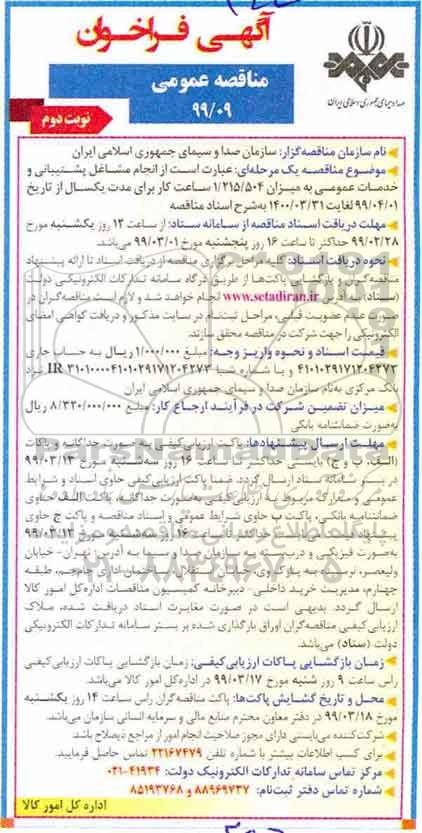 آگهی فراخوان
مناقصه عمومی
۹۹/۰۹
نوبت دوم
صدا و سیمای جمهوری اسلامی ایران
نام سازمان مناقصه‌گزار: سازمان صدا و سیمای جمهوری اسلامی ایران
موضوع مناقصه یک مرحله‌ای: عبارت است از انجام مشاغل پشتیبانی و
خدمات عمومی به میزان ۱/۲۱۵/۵۰۴ ساعت کار برای مدت یکسال از تاریخ
۹۹/۰۴/۰۱ لغایت ۱۴۰۰/۰۳/۳۱ به‌شرح اسناد مناقصه
مهلت دریافت اسناد مناقصه از سامانه ستاد: از ساعت ۱۳ روز یکشنبه مورخ
۹۹/۰۲/۲۸ حداکثر تا ساعت ۱۶ روز پنجشنبه مورخ ۹۹/۰۳/۰۱ می‌باشد.
نحوه دریافت اسناد: کلیه مراحل برگزاری مناقصه از دریافت اسناد تا ارائه پیشنهاد
مناقصه‌گران و بازگشایی پاکت‌ها از طریق درگاه سامانه تدارکات الکترونیکی دولت
(ستاد) به آدرس www.setadiran.ir انجام خواهد شد و لازم است مناقصه‌گران در
صورت عدم عضویت قبلی، مراحل ثبت‌نام در سایت مذکور و دریافت گواهی امضای
الکترونیکی را جهت شرکت در مناقصه محقق سازند.
قیمت اسناد و نحوه واریز وجه: مبلغ ۱/۰۰۰/۰۰۰ ریال به حساب جاری
۴۱۰۱۰۲۹۱۷۱۲۰۴۲۷۳ و با شماره شبا IR ۳۱۰۱۰۰۰۰۴۱۰۱۰۲۹۱۷۱۲۰۴۲۷۳ نزد
بانک مرکزی به‌نام سازمان صدا و سیمای جمهوری اسلامی ایران
میزان تضمین شرکت در فرآیند ارجاع کار: مبلغ ۸/۳۳۰/۰۰۰/۰۰۰ ریال
به‌صورت ضمانتنامه بانکی
مهلت ارسال پیشنهادها: پاکت ارزیابی کیفی به صورت جداگانه و پاکات
(الف، ب و ج) بایستی حداکثر تا ساعت ۱۶ روز سه‌شنبه مورخ ۹۹/۰۳/۱۳
در بستر سامانه ستاد ارسال گردد. ضمنا پاکت ارزیابی کیفی حاوی اسناد و شرایط
عمومی و مدارک مربوط به ارزیابی کیفی به‌صورت جداگانه، پاکت الف حاوی
ضمانتنامه بانکی، پاکت ب حاوی شرایط عمومی و اسناد مناقصه و پاکت ج حاوی
۱۶ مورخ ۹۹/۰۳/۱۳
به‌صورت فیزیکی و دربسته به سازمان صدا و سیما به آدرس: تهران- خیابان
ولیعصر، نرسیده به پارک‌وی، ساختمان اداری جام‌جم، طبقه
چهارم، مدیریت خرید داخلی- دبیرخانه کمیسیون مناقصات اداره کل امور کالا
ارسال گردد. بدیهی است در صورت مغایرت اسناد دریافت شده، ملاک
ارزیابی کیفی مناقصه‌گران اوراق بارگذاری شده بر بستر سامانه تدارکات الکترونیکی
دولت (ستاد) می‌باشد.
زمان بازگشایی پاکات ارزیابی کیفی: زمان بازگشایی پاکات ارزیابی کیفی
راس ساعت ۹ روز شنبه مورخ ۹۹/۰۳/۱۷ در اداره کل امور کالا می‌باشد.
محل و تاریخ گشایش پاکت‌ها: پاکت مناقصه گران راس ساعت ۱۴ روز یکشنبه
مورخ ۹۹/۰۳/۱۸ در دفتر معاون محترم منابع مالی و سرمایه انسانی سازمان می‌باشد.
شرکت‌کننده می‌بایستی دارای مجوز صلاحیت انجام امور از مراجع ذیصلاح باشد
برای کسب اطلاعات بیشتر با شماره تلفن ۲۲۱۶۷۴۷۹ تماس حاصل فرمایید.
مرکز تماس سامانه تدارکات الکترونیک دولت: ۴۱۹۳۴-۰۲۱
شماره تماس دفتر ثبت‌نام: ۸۸۹۶۹۷۳۷ و ۸۵۱۹۳۷۶۸
اداره کل امور کالا
ParsNamadData
پایگاه اطلاع رسانی مناقصه و مزایده
۰۲۱-۸۸۳۴۹۶۷۰-۵